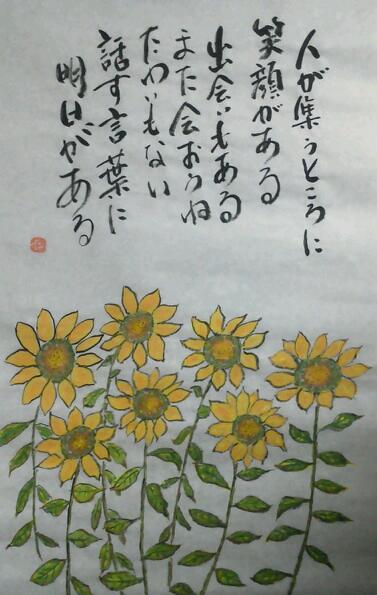 人が集うところに
笑顔がある
出会いもある
また会おうね
たわいもない
話す言葉に
明日がある